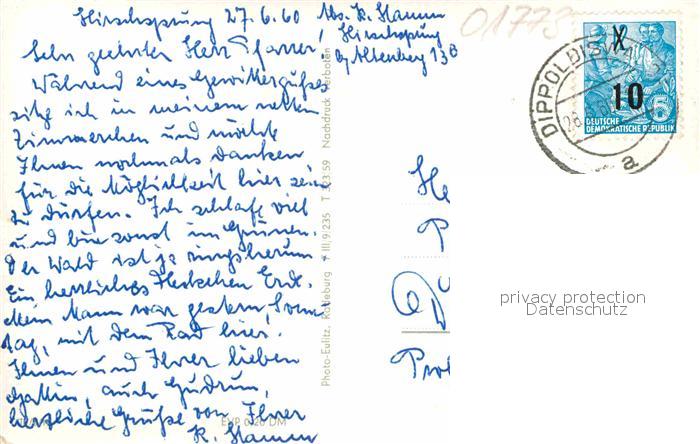 Hirschsprung 27.6.60
Abs. K. Hamm
Hirschsprung
b/ Altenberg 13B
01773
Sehr geehrter Herr Pfarrer,
Während eines Gewittergusses
sitze ich in meinem netten
Zimmerchen und möchte
Ihnen nochmals danken,
für die Möglichkeit hier sein
zu dürfen. Ich schlafe viel
und bin sonst im Grünen.
Der Wald ist ja ringsherum
Ein herrliches Fleckchen Erde.
Mein Mann war gestern, Sonn-
tag, mit dem Rad hier.
Ihnen und Ihrer lieben
Gattin, auch Gudrun,
herzliche Grüße von Ihrer
K. Hamm
Photo-Eulitz, Radeburg III/9/235 T 3/3 59 Nachdruck verboten
EVP 0,20 DM
X
10
DEUTSCHE
DEMOKRATISCHE REPUBLIK
DIPPOLDIS
a
He
P
D
Pro
privacy protection
Datenschutz